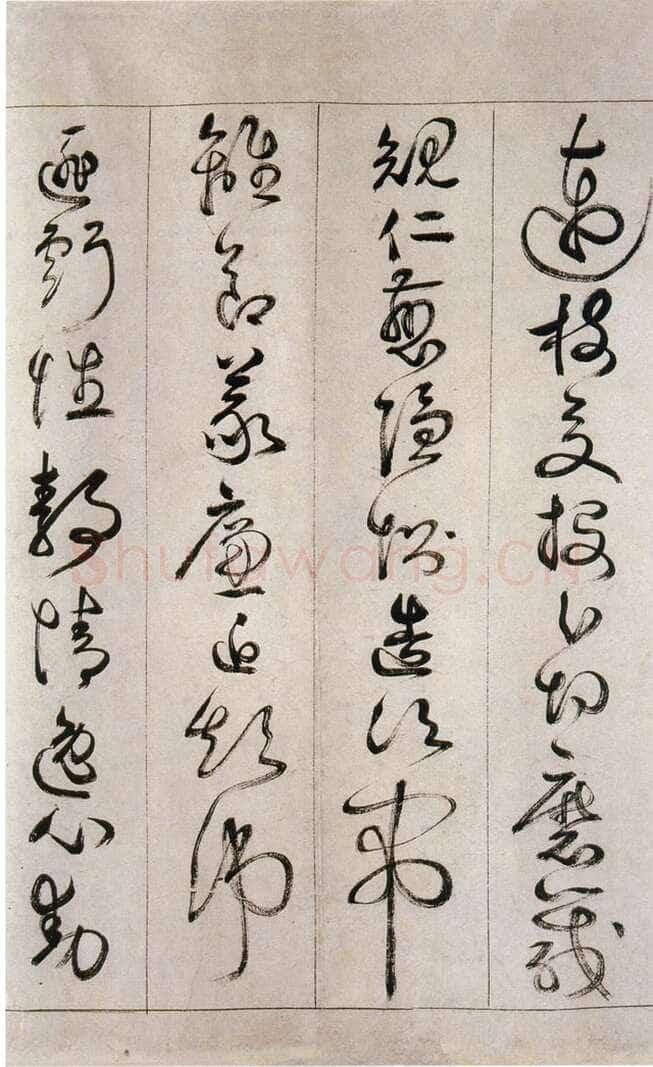 連枝交投分切磨箴
規仁慈隱惻造次弗
離節義廉退顛沛
匪虧性靜情逸心動
Shufawang.CN